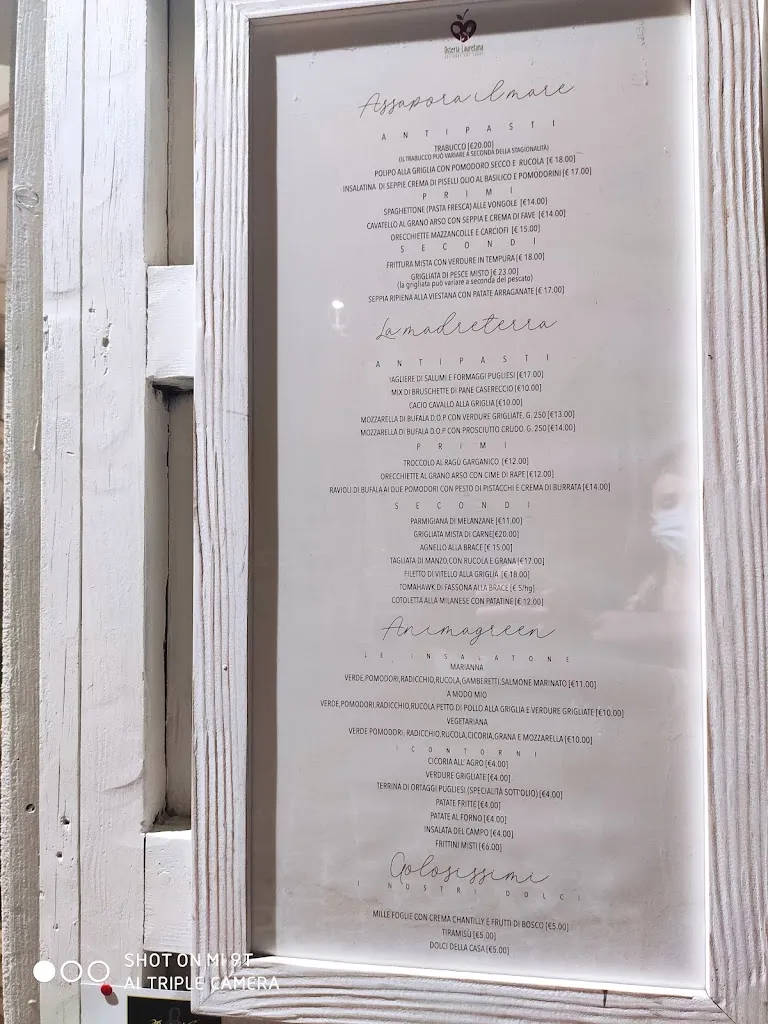 Osteria Lauretana
Assapora il mare
ANTIPASTI
TRABUCCO [€20.00]
(IL TRABUCCO PUÒ VARIARE A SECONDA DELLA STAGIONALITÀ)
POLIPO ALLA GRIGLIA CON POMODORO SECCO E RUCOLA [€ 18.00]
INSALATINA DI SEPPIE CREMA DI PISELLI OLIO AL BASILICO E POMODORINI [€ 17.00]
PRIMI
SPAGHETTONE (PASTA FRESCA) ALLE VONGOLE [€14.00]
CAVATELLO AL GRANO ARSO CON SEPPIA E CREMA DI FAVE [€14.00]
ORECCHIETTE MAZZANCOLLE E CARCIOFI [€ 15.00]
SECONDI
FRITTURA MISTA CON VERDURE IN TEMPURA [€ 18.00]
GRIGLIATA DI PESCE MISTO [€ 23.00]
(la grigliata può variare a seconda del pescato)
SEPPIA RIPIENA ALLA VIESTANA CON PATATE ARRAGANATE [€ 17.00]
La madreterra
ANTIPASTI
TAGLIERE DI SALUMI E FORMAGGI PUGLIESI [€17.00]
MIX DI BRUSCHETTE DI PANE CASERECCIO [€10.00]
CACIO CAVALLO ALLA GRIGLIA [€10.00]
MOZZARELLA DI BUFALA D.O.P CON VERDURE GRIGLIATE. G. 250 [€13.00]
MOZZARELLA DI BUFALA D.O.P CON PROSCIUTTO CRUDO. G. 250 [€14.00]
PRIMI
TROCCOLO AL RAGÙ GARGANICO [€12.00]
ORECCHIETTE AL GRANO ARSO CON CIME DI RAPE [€12.00]
RAVIOLI DI BUFALA AI DUE POMODORI CON PESTO DI PISTACCHI E CREMA DI BURRATA [€14.00]
SECONDI
PARMIGIANA DI MELANZANE [€11.00]
GRIGLIATA MISTA DI CARNE[€20.00]
AGNELLO ALLA BRACE [€ 15.00]
TAGLIATA DI MANZO,CON RUCOLA E GRANA [€17.00]
FILETTO DI VITELLO ALLA GRIGLIA [€ 18.00]
TOMAHAWK DI FASSONA ALLA BRACE [€ 5/hg]
COTOLETTA ALLA MILANESE CON PATATINE [€ 12.00]
Animagreen
LE INSALATONE
MARIANNA
VERDE,POMODORI,RADICCHIO,RUCOLA,GAMBERETTI,SALMONE MARINATO [€11.00]
A MODO MIO
VERDE,POMODORI,RADICCHIO,RUCOLA PETTO DI POLLO ALLA GRIGLIA E VERDURE GRIGLIATE [€10.00]
VEGETARIANA
VERDE POMODORI, RADICCHIO,RUCOLA,CICORIA,GRANA E MOZZARELLA [€10.00]
I CONTORNI
CICORIA ALL' AGRO [€4.00]
VERDURE GRIGLIATE [€4.00]
TERRINA DI ORTAGGI PUGLIESI (SPECIALITÀ SOTT'OLIO) [€4.00]
PATATE FRITTE [€4.00]
PATATE AL FORNO [€4.00]
INSALATA DEL CAMPO [€4.00]
FRITTINI MISTI [€6.00]
Golosissimi
I NOSTRI DOLCI
MILLE FOGLIE CON CREMA CHANTILLY E FRUTTI DI BOSCO [€5.00]
TIRAMISÙ [€5.00]
DOLCI DELLA CASA [€5.00]
SHOT ON MI 9T
AI TRIPLE CAMERA